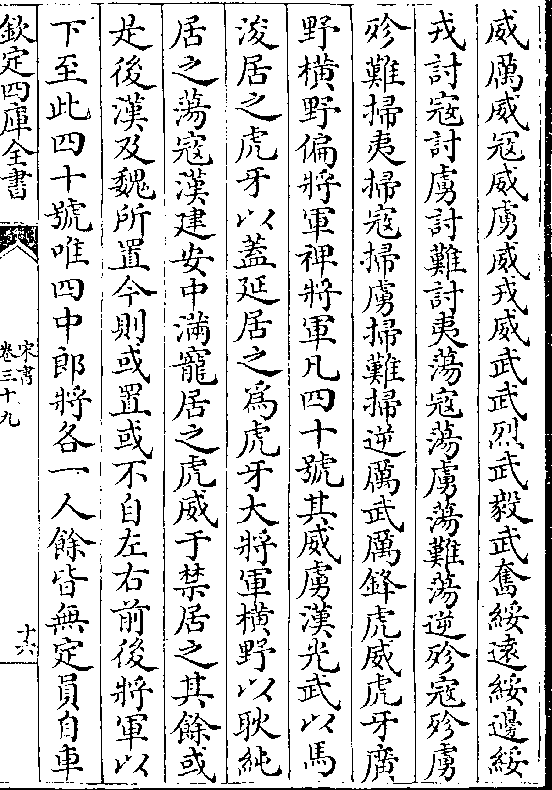 威厲威冦威虜威戎威武武烈武毅武奮綏遠綏邊綏
戎討寇討虜討難討夷蕩寇蕩虜蕩難蕩逆殄寇殄虜
殄難掃夷掃寇掃虜掃難掃逆厲武厲鋒虎威虎牙廣
野橫野偏將軍裨將軍凡四十號其威虜漢光武以馮
浚居之虎牙以蓋延居之為虎牙大將軍橫野以耿純
居之蕩寇漢建安中滿寵居之虎威于禁居之其餘或
是後漢及魏所置今則或置或不自左右前後將軍以
下至此四十號唯四中郎將各一人餘皆無定員自車
欽定四庫全書
宋書
卷三十九
十六